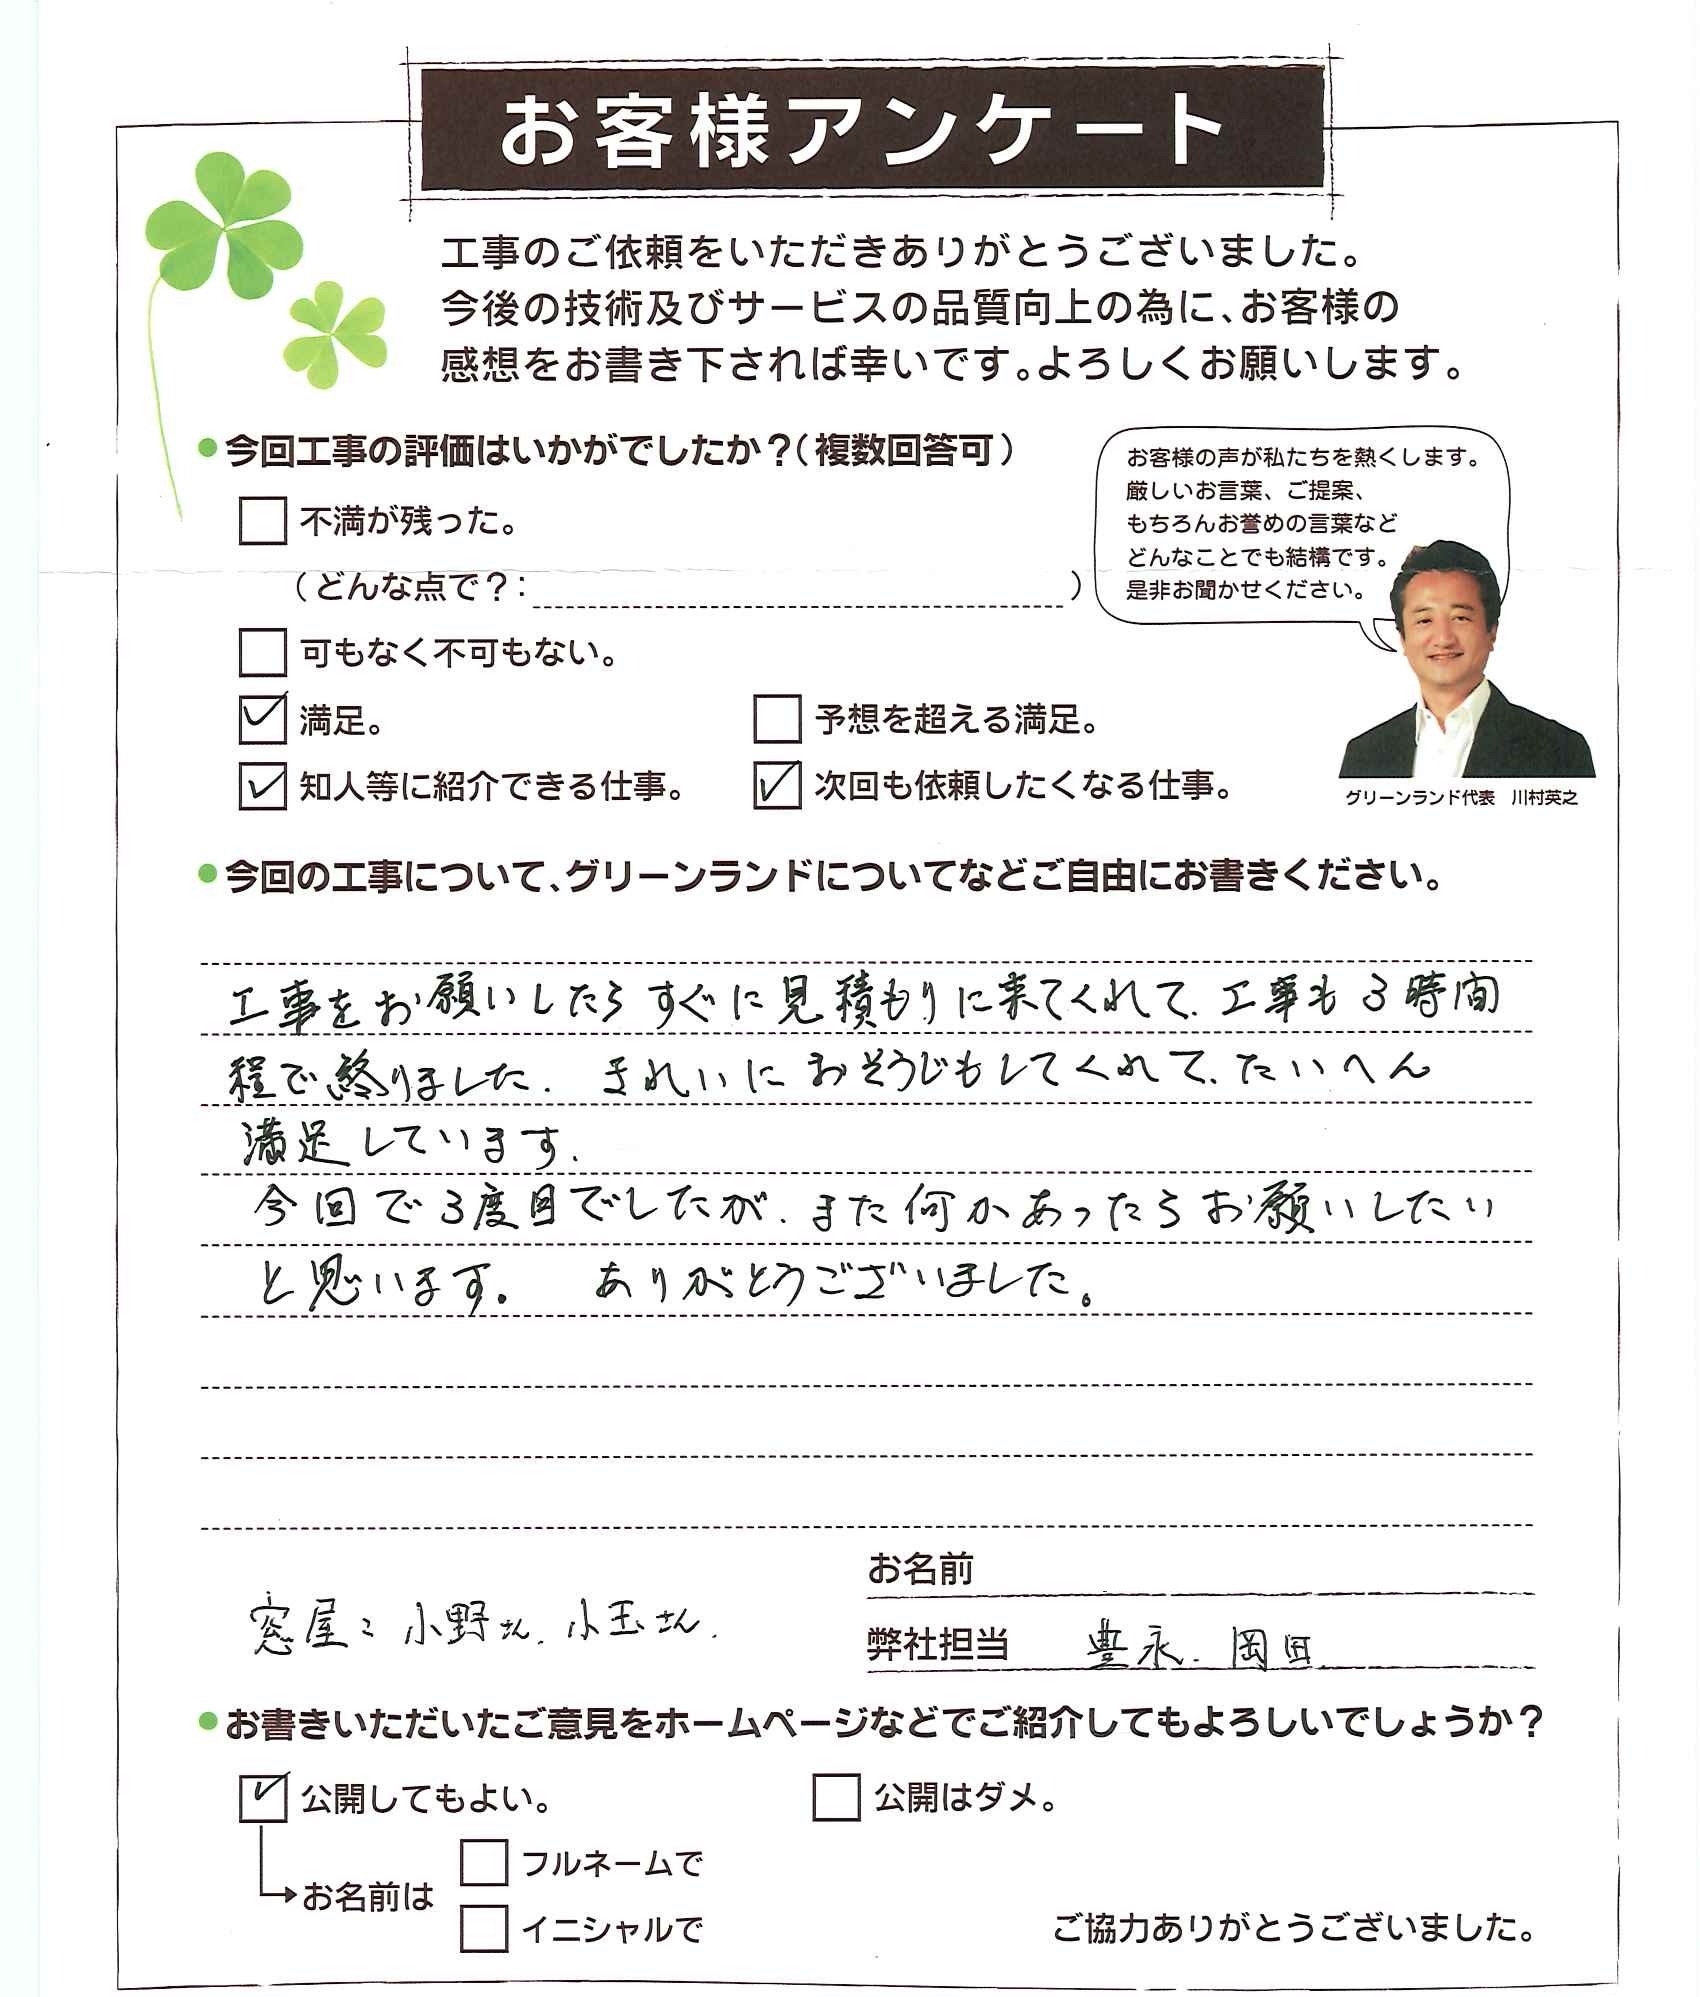 お客様アンケート
工事のご依頼をいただきありがとうございました。
今後の技術及びサービスの品質向上の為に、お客様の
感想をお書き下されば幸いです。よろしくお願いします。
●今回工事の評価はいかがでしたか？（複数回答可）
お客様の声が私たちを熱くします。
厳しいお言葉、ご提案、
もちろんお誉めの言葉など
どんなことでも結構です。
是非お聞かせください。
不満が残った。
（どんな点で？：　　　）
可もなく不可もない。
満足。
予想を超える満足。
知人等に紹介できる仕事。
次回も依頼したくなる仕事。
グリーンランド代表　川村英之
●今回の工事について、グリーンランドについてなどご自由にお書きください。
工事をお願いしたらすぐに見積もりに来てくれて、工事も3時間
程で終りました. きれいにおそうじもしてくれて、たいへん
満足しています.
今回で3度目でしたが、また何かあったらお願いしたい
と思います。　ありがとうございました。
お名前
窓屋: 小野さん. 小玉さん.
弊社担当　豊永. 岡田
●お書きいただいたご意見をホームページなどでご紹介してもよろしいでしょうか？
公開してもよい。
公開はダメ。
お名前は
フルネームで
イニシャルで
ご協力ありがとうございました。